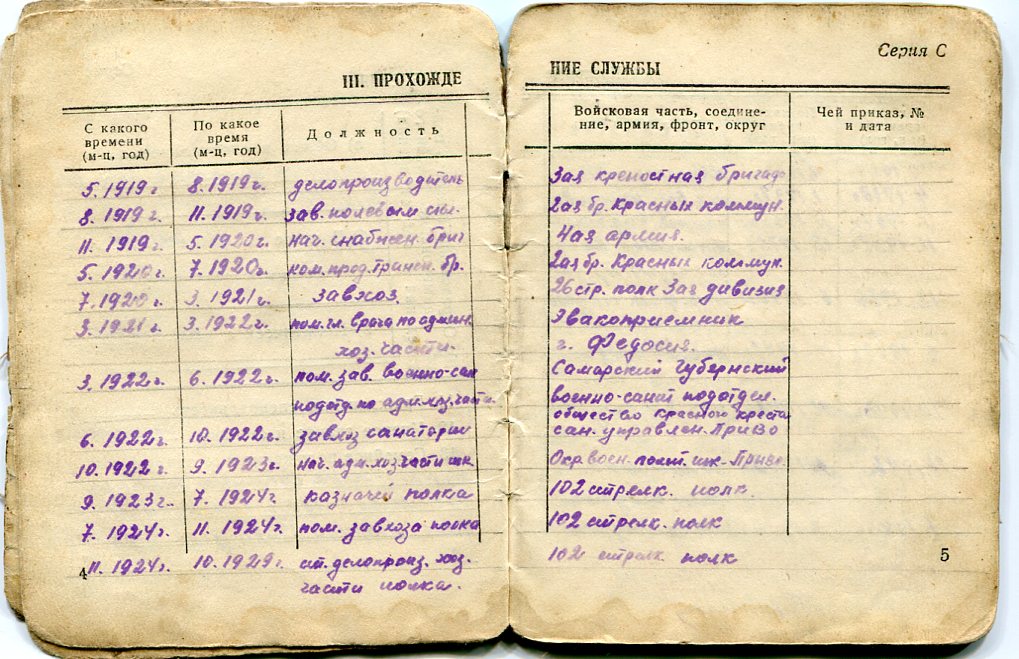 Серия С
III. ПРОХОЖДЕ НИЕ СЛУЖБЫ
С какого времени (м-ц, год) По какое время (м-ц, год) Должность Войсковая часть, соедине-ние, армия, фронт, округ Чей приказ, № и дата
5. 1919 г. 8. 1919 г. делопроизводитель 3ая крепостная бригад
8. 1919 г. 11. 1919 г. зав. полевым 2ая бр. Красных коммун.
11. 1919 г. 5. 1920 г. нач. снабжен. бриг 4ая армия.
5. 1920 г. 7. 1920 г. ком. прод. бр. 2ая бр. Красных коммун.
7. 1920 г. 3. 1921 г. завхоз 26 стр. полк 3ая дивизия
3. 1921 г. 3. 1922 г. пом. гл. врача по админ. Эвакоприемник
хоз. части. г. Федосия.
3. 1922 г. 6. 1922 г. пом. зав. военно-сан Самарский Губернский
подотд. по адм. хоз. части. военно-санит подотдел.
общество красного креста
6. 1922 г. 10. 1922 г. завхоз санатории сан. управлен. ПриВо
10. 1922 г. 9. 1923 г. нач. адм. хоз. части шк. Окр воен. полит. шк. Приво
9. 1923 г. 7. 1924 г. казначей полка 102 стрелк. полк.
7. 1924 г. 11. 1924 г. пом. завхоза полка 102 стрелк. полк
11. 1924 г. 10. 1929 г. ст. делопроиз. хоз. 102 стрелк. полк
части полка.
4 5